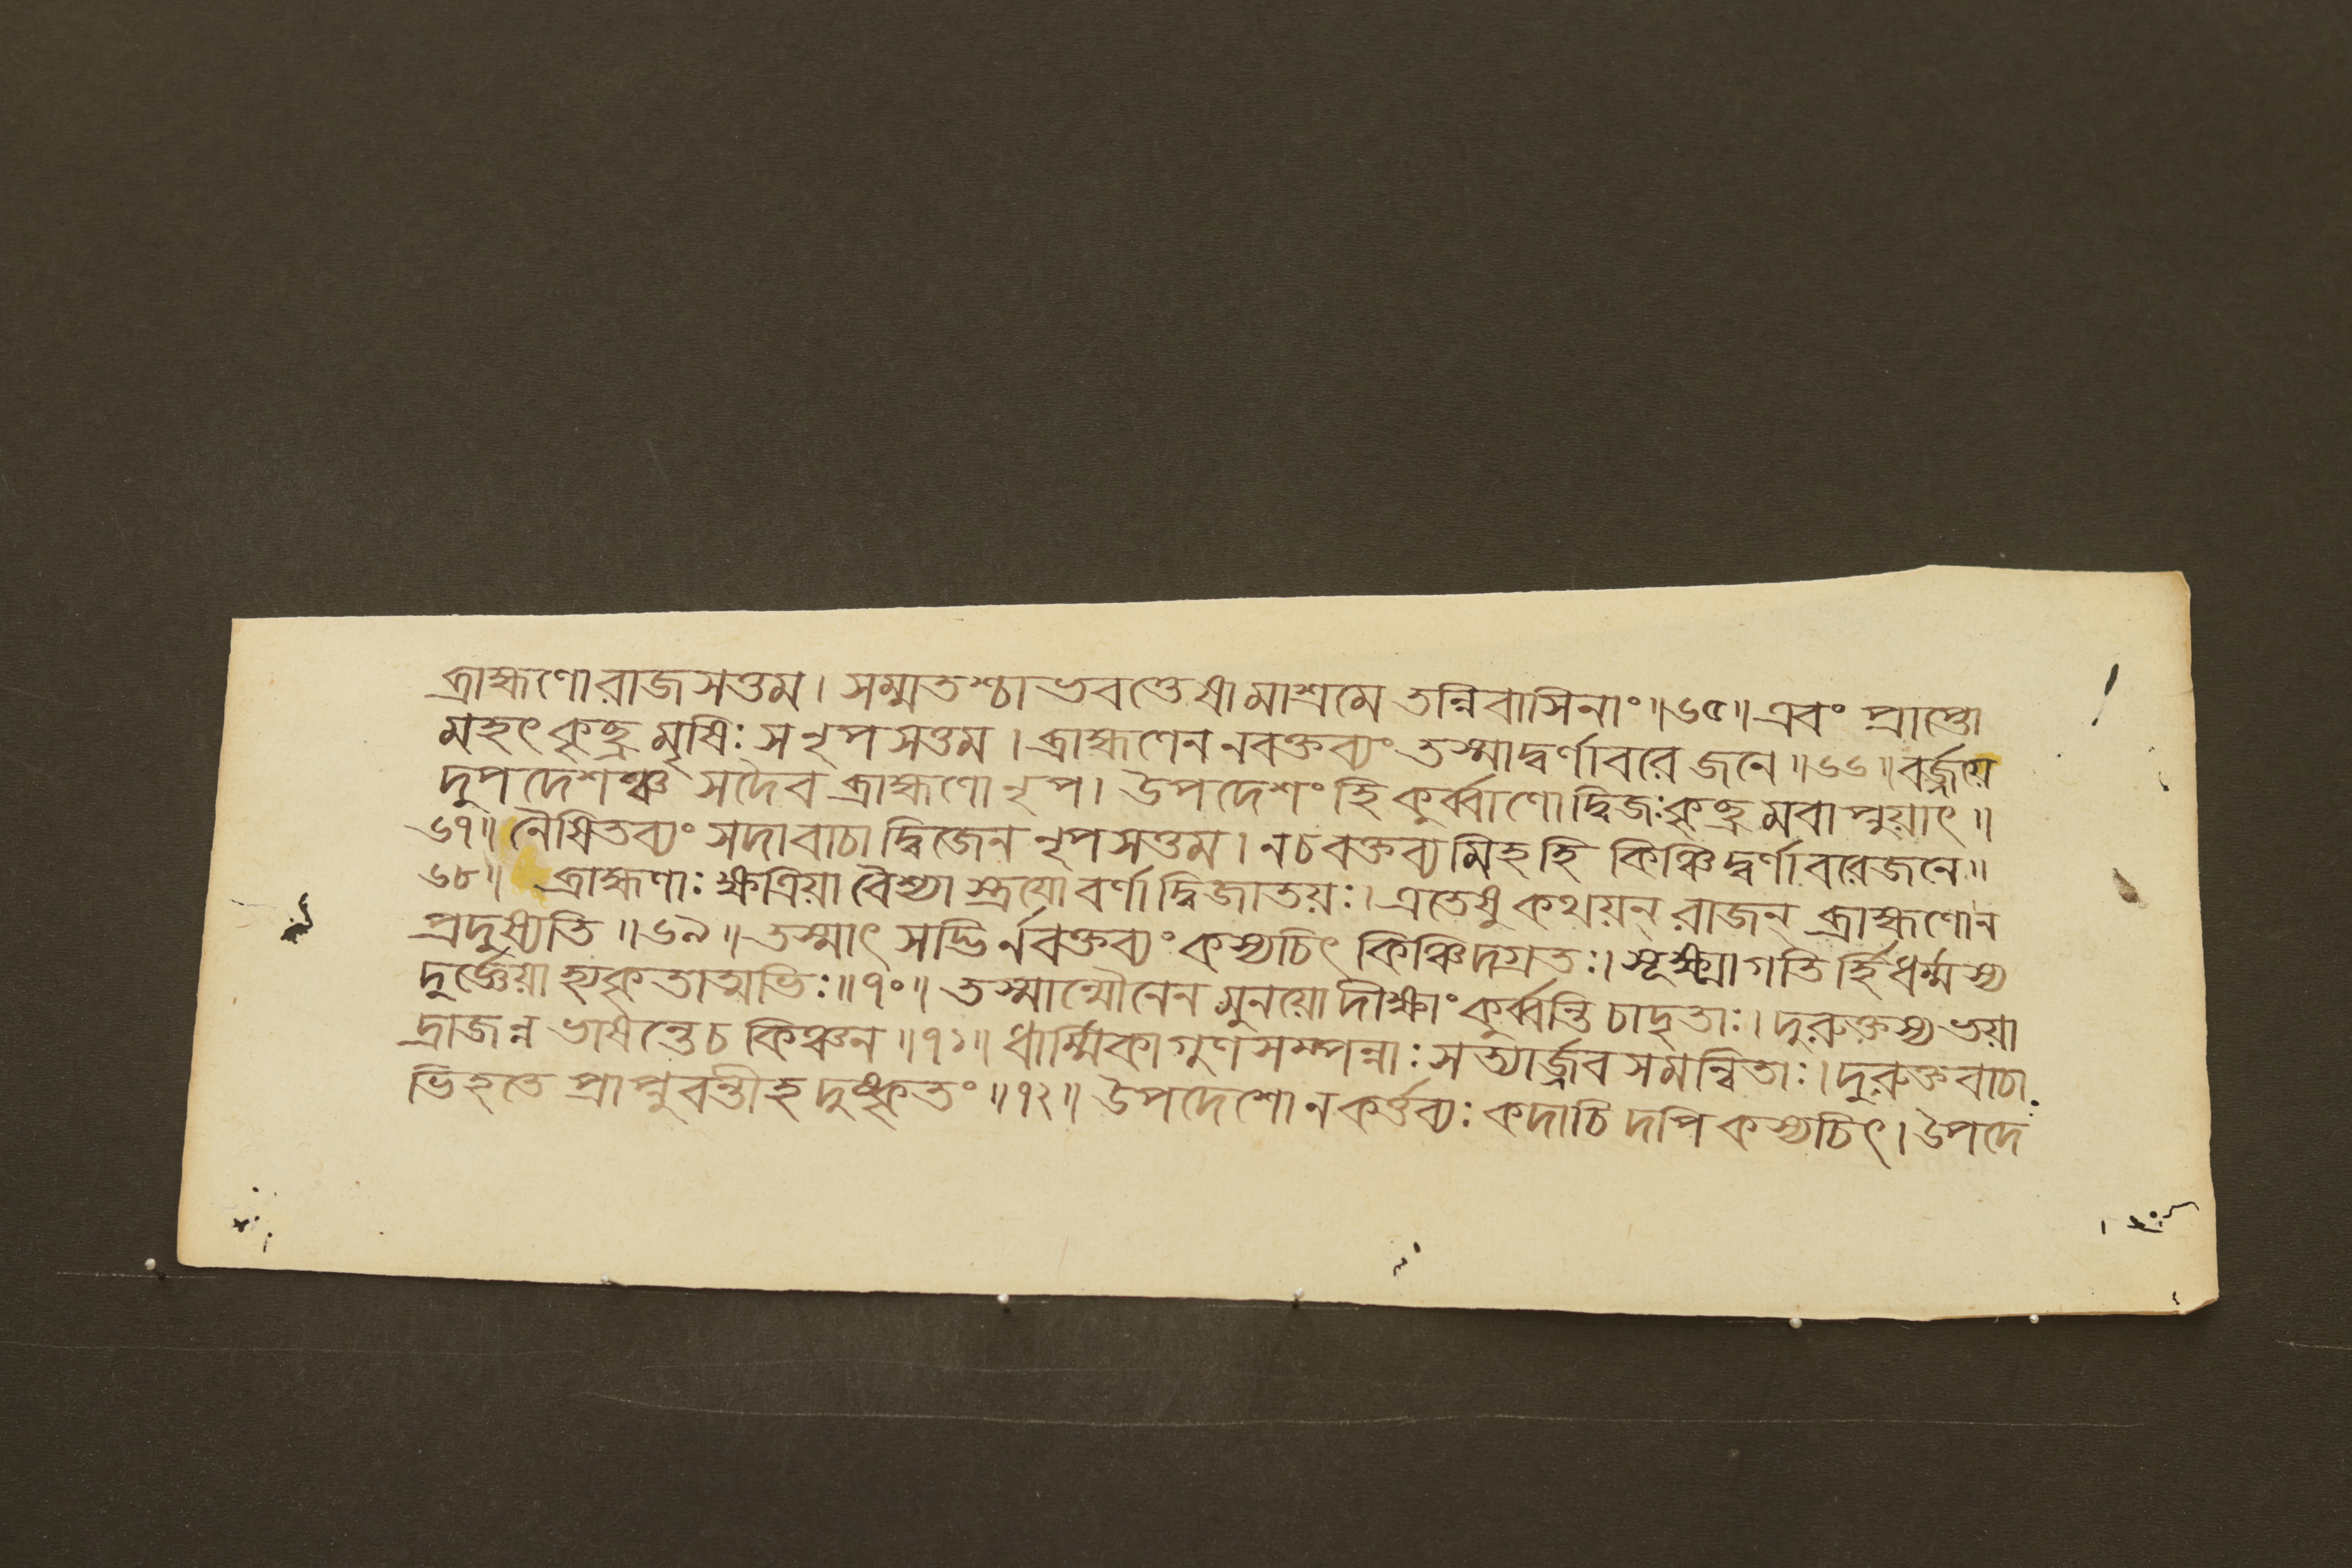 ব্রাহ্মণো রাজসত্তম। সম্মতশ্চাভবত্তেষামাশ্রমে তন্নিবাসিনাং॥৬৫॥এবং প্রাপ্তো
মহৎ কৃচ্ছ্রমৃষিঃ স নৃপসত্তম। ব্রাহ্মণেন নবক্তব্যং তস্মাদ্বর্ণাবরে জনে॥৬৬॥বর্জ্জয়ে
দুপদেশঞ্চ সদৈব ব্রাহ্মণো নৃপ। উপদেশং হি কুর্ব্বাণো দ্বিজঃকৃচ্ছ্রমবাপ্নুয়াৎ॥
৬৭॥ নৈষিতব্যং সদাবাচা দ্বিজেন নৃপসত্তম। নচ বক্তব্যমিহহি কিঞ্চিদ্বর্ণাবরেজনে॥
৬৮॥ ব্রাহ্মণাঃ ক্ষত্রিয়া বৈশ্যাস্ত্রয়ো বর্ণা দ্বিজাতয়ঃ। এতেষু কথয়ন্ রাজন্ ব্রাহ্মণোন
প্রদুষ্যতি॥৬৯॥তস্মাৎ সদ্ভির্নবক্তব্যং কস্যচিৎ কিঞ্চিদগ্রতঃ। সূক্ষ্মাগতির্হি ধর্ম্মস্য
দুর্জ্ঞেয়া হ্যকৃতাত্মভিঃ॥৭০॥ তস্মান্মৌনেন মুনয়ো দীক্ষাং কুর্ব্বন্তি চাদৃতাঃ। দুরুক্তস্য ভয়া
দ্রাজন্ন ভাষন্তেচ কিঞ্চন॥৭১॥ ধার্ম্মিকাগুণসম্পন্নাঃ সত্যার্জ্জবসমন্বিতাঃ। দুরুক্তবাচা
ভিহতে প্রাপ্নুবন্তীহ দুষ্কৃতং॥৭২॥ উপদেশো নকর্ত্তব্যঃ কদাচিদপি কস্যচিৎ। উপদে